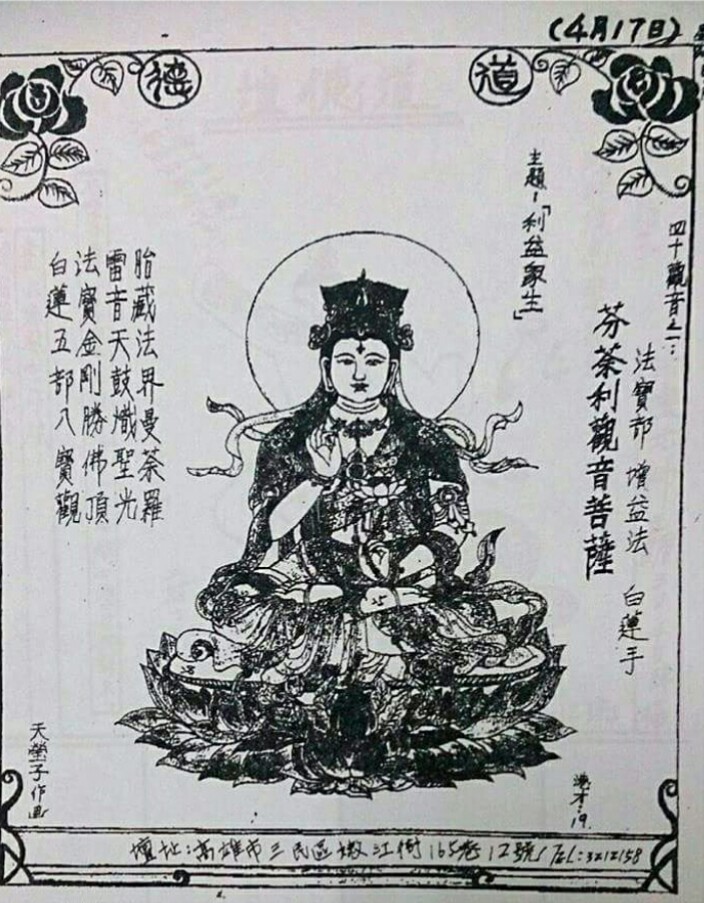 (4月17日)
道
德
四十觀音之一:
法寶部 增益法 白蓮手
芬荼利觀音菩薩
主題-「利益眾生」
胎藏法界曼荼羅
雷音天鼓熾聖光
法寶金剛勝佛頂
白蓮五部八寶觀
天瑩子作画
壇址:高雄市三民區嫩江街165巷12號/TEL:3212158